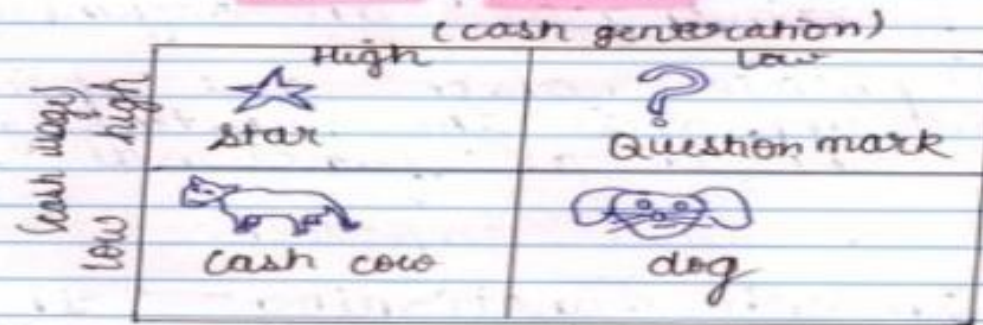 (cash generation)
High Low
(cash usage)
high
star Question mark
low
cash cow dog